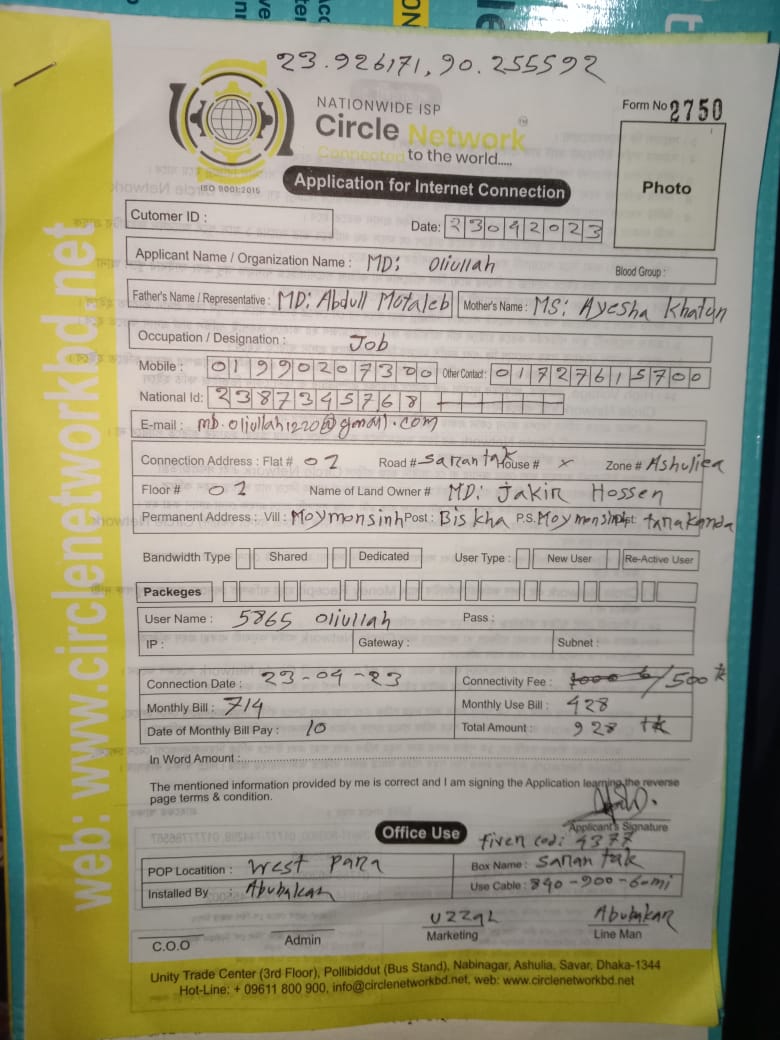 23.926171, 90.255592
NATIONWIDE ISP
Form No 2750
Circle Network
TM
Connected to the world.....
ISO 9001:2015
Application for Internet Connection
Photo
Cutomer ID :
Date: 23042023
Applicant Name / Organization Name : MD: Oliullah Blood Group :
Father's Name / Representative : MD: Abdull Motaleb Mother's Name : MS: Ayesha Khatun
Occupation / Designation : Job
Mobile : 01990207300 Other Contact : 01727615700
National Id: 2387345768
E-mail : md.oliullah1220@gmail.com
Connection Address : Flat # 02 Road # Saran tak House # x Zone # Ashuliea
Floor # 02 Name of Land Owner # MD: Jakir Hossen
Permanent Address : Vill : Moymonsinh Post : Biskha P.S. Moymonsinh Dist: tarakanda
Bandwidth Type Shared Dedicated User Type : New User Re-Active User
Packeges
User Name : 5865 Oliullah Pass :
IP : Gateway : Subnet :
Connection Date : 23-04-23 Connectivity Fee : 1000 /500 tk
Monthly Bill : 714 Monthly Use Bill : 428
Date of Monthly Bill Pay : 10 Total Amount : 928 tk
In Word Amount :
The mentioned information provided by me is correct and I am signing the Application learning the reverse
page terms & condition.
Applicant's Signature
Office Use
fiven code: 4377
POP Locatition : West Para Box Name : Saran tak
Installed By : Abubakar Use Cable : 840-900-60mi
Uzzal Abubakar
C.O.O Admin Marketing Line Man
Unity Trade Center (3rd Floor), Pollibiddut (Bus Stand), Nabinagar, Ashulia, Savar, Dhaka-1344
Hot-Line: + 09611 800 900, info@circlenetworkbd.net, web: www.circlenetworkbd.net
web: www.circlenetworkbd.net